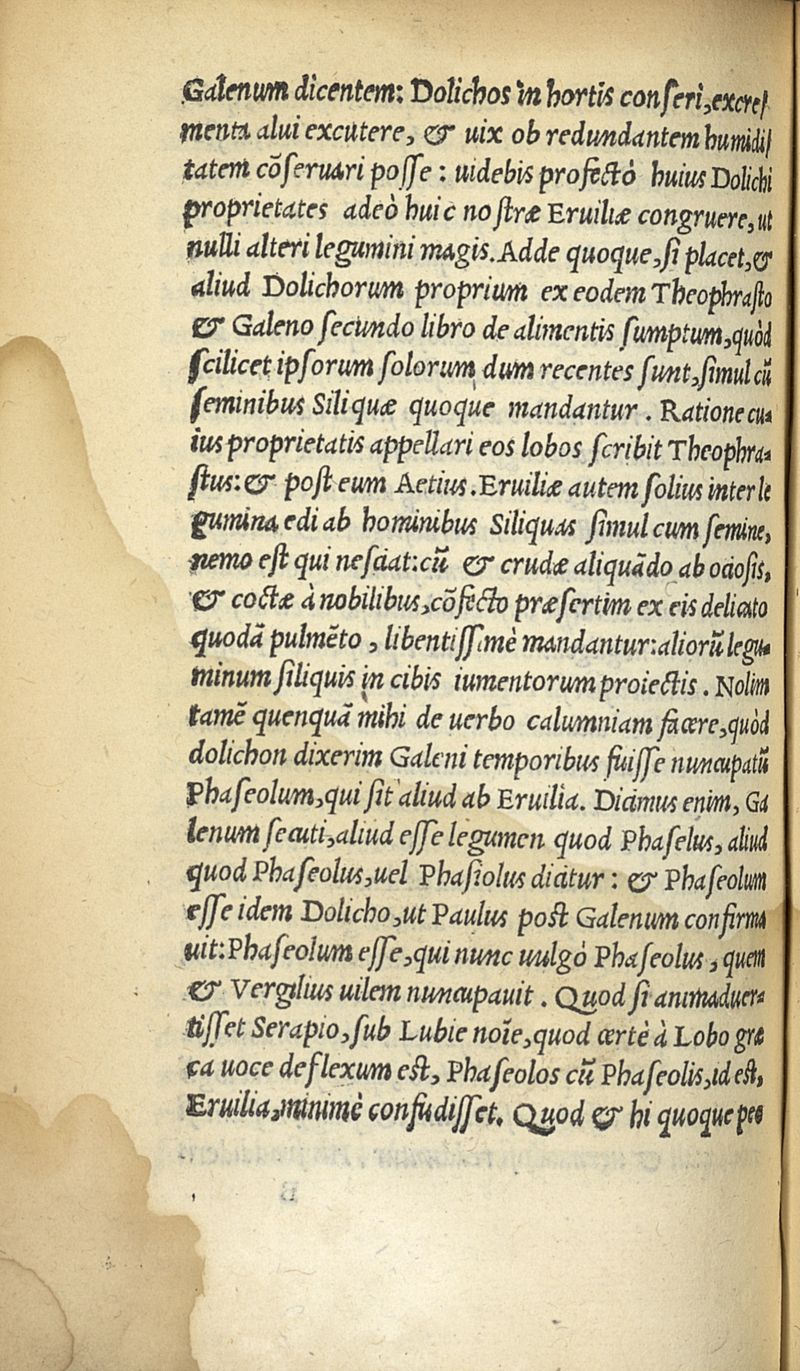 Galenum dicentem: Dolichos in hortis conseri, excre/
menta alui excutere, & uix ob redundantem humidi/
tatem cõseruari posse : uidebis profectò huius Dolichi
proprietates adeò huic nostræ Eruiliæ congruere, ut
nulli alteri legumini magis. Adde quoque, si placet, &
aliud Dolichorum proprium ex eodem Theophrasto
& Galeno secundo libro de alimentis sumptum, quòd
scilicet ipsorum solorum dum recentes sunt, simul cũ
seminibus Siliquæ quoque mandantur . Ratione cu-
ius proprietatis appellari eos lobos scribit Theophra-
stus: & post eum Aetius. Eruiliæ autem solius inter le
gumina edi ab hominibus Siliquas simul cum semine,
nemo est qui nesciat: cũ & crudæ aliquãdo ab ociosis,
& coctæ à nobilibus, cõfecto præsertim ex eis delicato
quodã pulmẽto , libentissimè mandantur: aliorũ legu-
minum siliquis in cibis iumentorum proiectis . Nolim
tamẽ quenquã mihi de uerbo calumniam facere, quòd
dolichon dixerim Galeni temporibus fuisse nuncupatũ
Phaseolum, qui sit aliud ab Eruilia. Dicimus enim, Ga
lenum secuti, aliud esse legumen quod Phaselus, aliud
quod Phaseolus, uel Phasiolus dicitur : & Phaseolum
esse idem Dolicho, ut Paulus post Galenum confirma
uit: Phaseolum esse, qui nunc uulgò Phaseolus , quem
& Vergilius uilem nuncupauit . Quod si animaduer-
tisset Serapio, sub Lubie noĩe, quod certè à Lobo græ
ca uoce deflexum est, Phaseolos cũ Phaselis, id est,
Eruilia, minimè confudisset. Quod & hi quoque pec